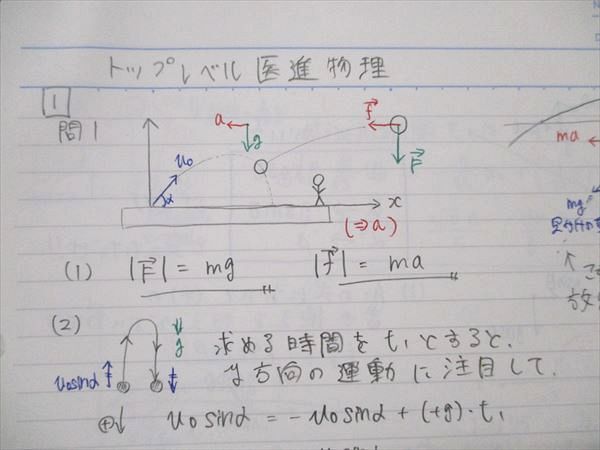 トップレベル 医進物理
1
問1
u₀
α
a
g
f→
F→
x
(⇒a)
ma
mg
(1) |F→| = mg |f→| = ma
(2)
g
u₀sinα
求める時間をt₁とすると、
y方向の運動に注目して、
⊕↓ u₀sinα = -u₀sinα + (+g)・t₁